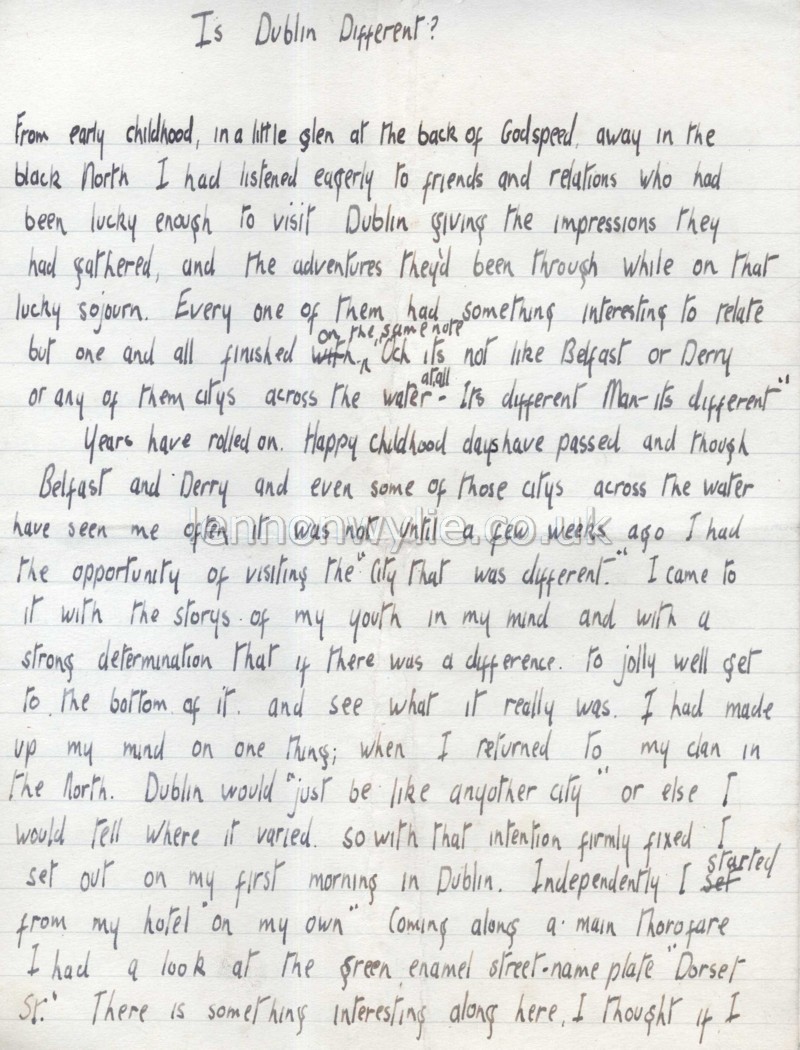 Is Dublin Different?
From early childhood, in a little glen at the back of Godspeed, away in the
black North I had listened eagerly to friends and relations who had
been lucky enough to visit Dublin giving the impressions they
had gathered, and the adventures they'd been through while on that
lucky sojourn. Every one of them had something interesting to relate
on the same note
but one and all finished with "Och its not like Belfast or Derry
atall
or any of them citys across the water - Its different Man - its different"
Years have rolled on. Happy childhood days have passed and though
Belfast and Derry and even some of those citys across the water
have seen me often it was not until a few weeks ago I had
the opportunity of visiting the "City that was different." I came to
it with the storys of my youth in my mind and with a
strong determination that if there was a difference. to jolly well get
to the bottom of it. and see what it really was. I had made
up my mind on one thing; when I returned to my clan in
the North. Dublin would "just be like anyother city" or else I
would tell where it varied. so with that intention firmly fixed I
started
set out on my first morning in Dublin. Independently I set
from my hotel "on my own" Coming along a main thorofare
I had a look at the green enamel street-name plate "Dorset
St." There is something interesting along here, I thought if I
lennonwylie.co.uk